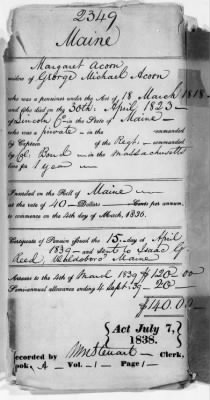 2349
Maine
Margaret Acorn
widow of George Michael Acorn
who was a pensioner under the Act of 18 March 1818
and who died on the 30th. April 1823
of Lincoln Co in the State of Maine
who was a private in the commanded
by Captain of the Regt. commanded
by Col. Bond in the Massachusetts
line for 1 year
Inscribed on the Roll of Maine
at the rate of 40 Dollars Cents per annum,
to commence on the 4th day of March, 1836.
Certificate of Pension issued the 15 day of April
1839 and sent to Isaac G
Reed, Waldoboro Maine
Arrears to the 4th of March 1839 $120 00
Semi-annual allowance ending 4 Sept. 39 20
$140.00
Act July 7,
1838.
Recorded by Wm Stewart Clerk,
Book, A Vol. 1 Page 1